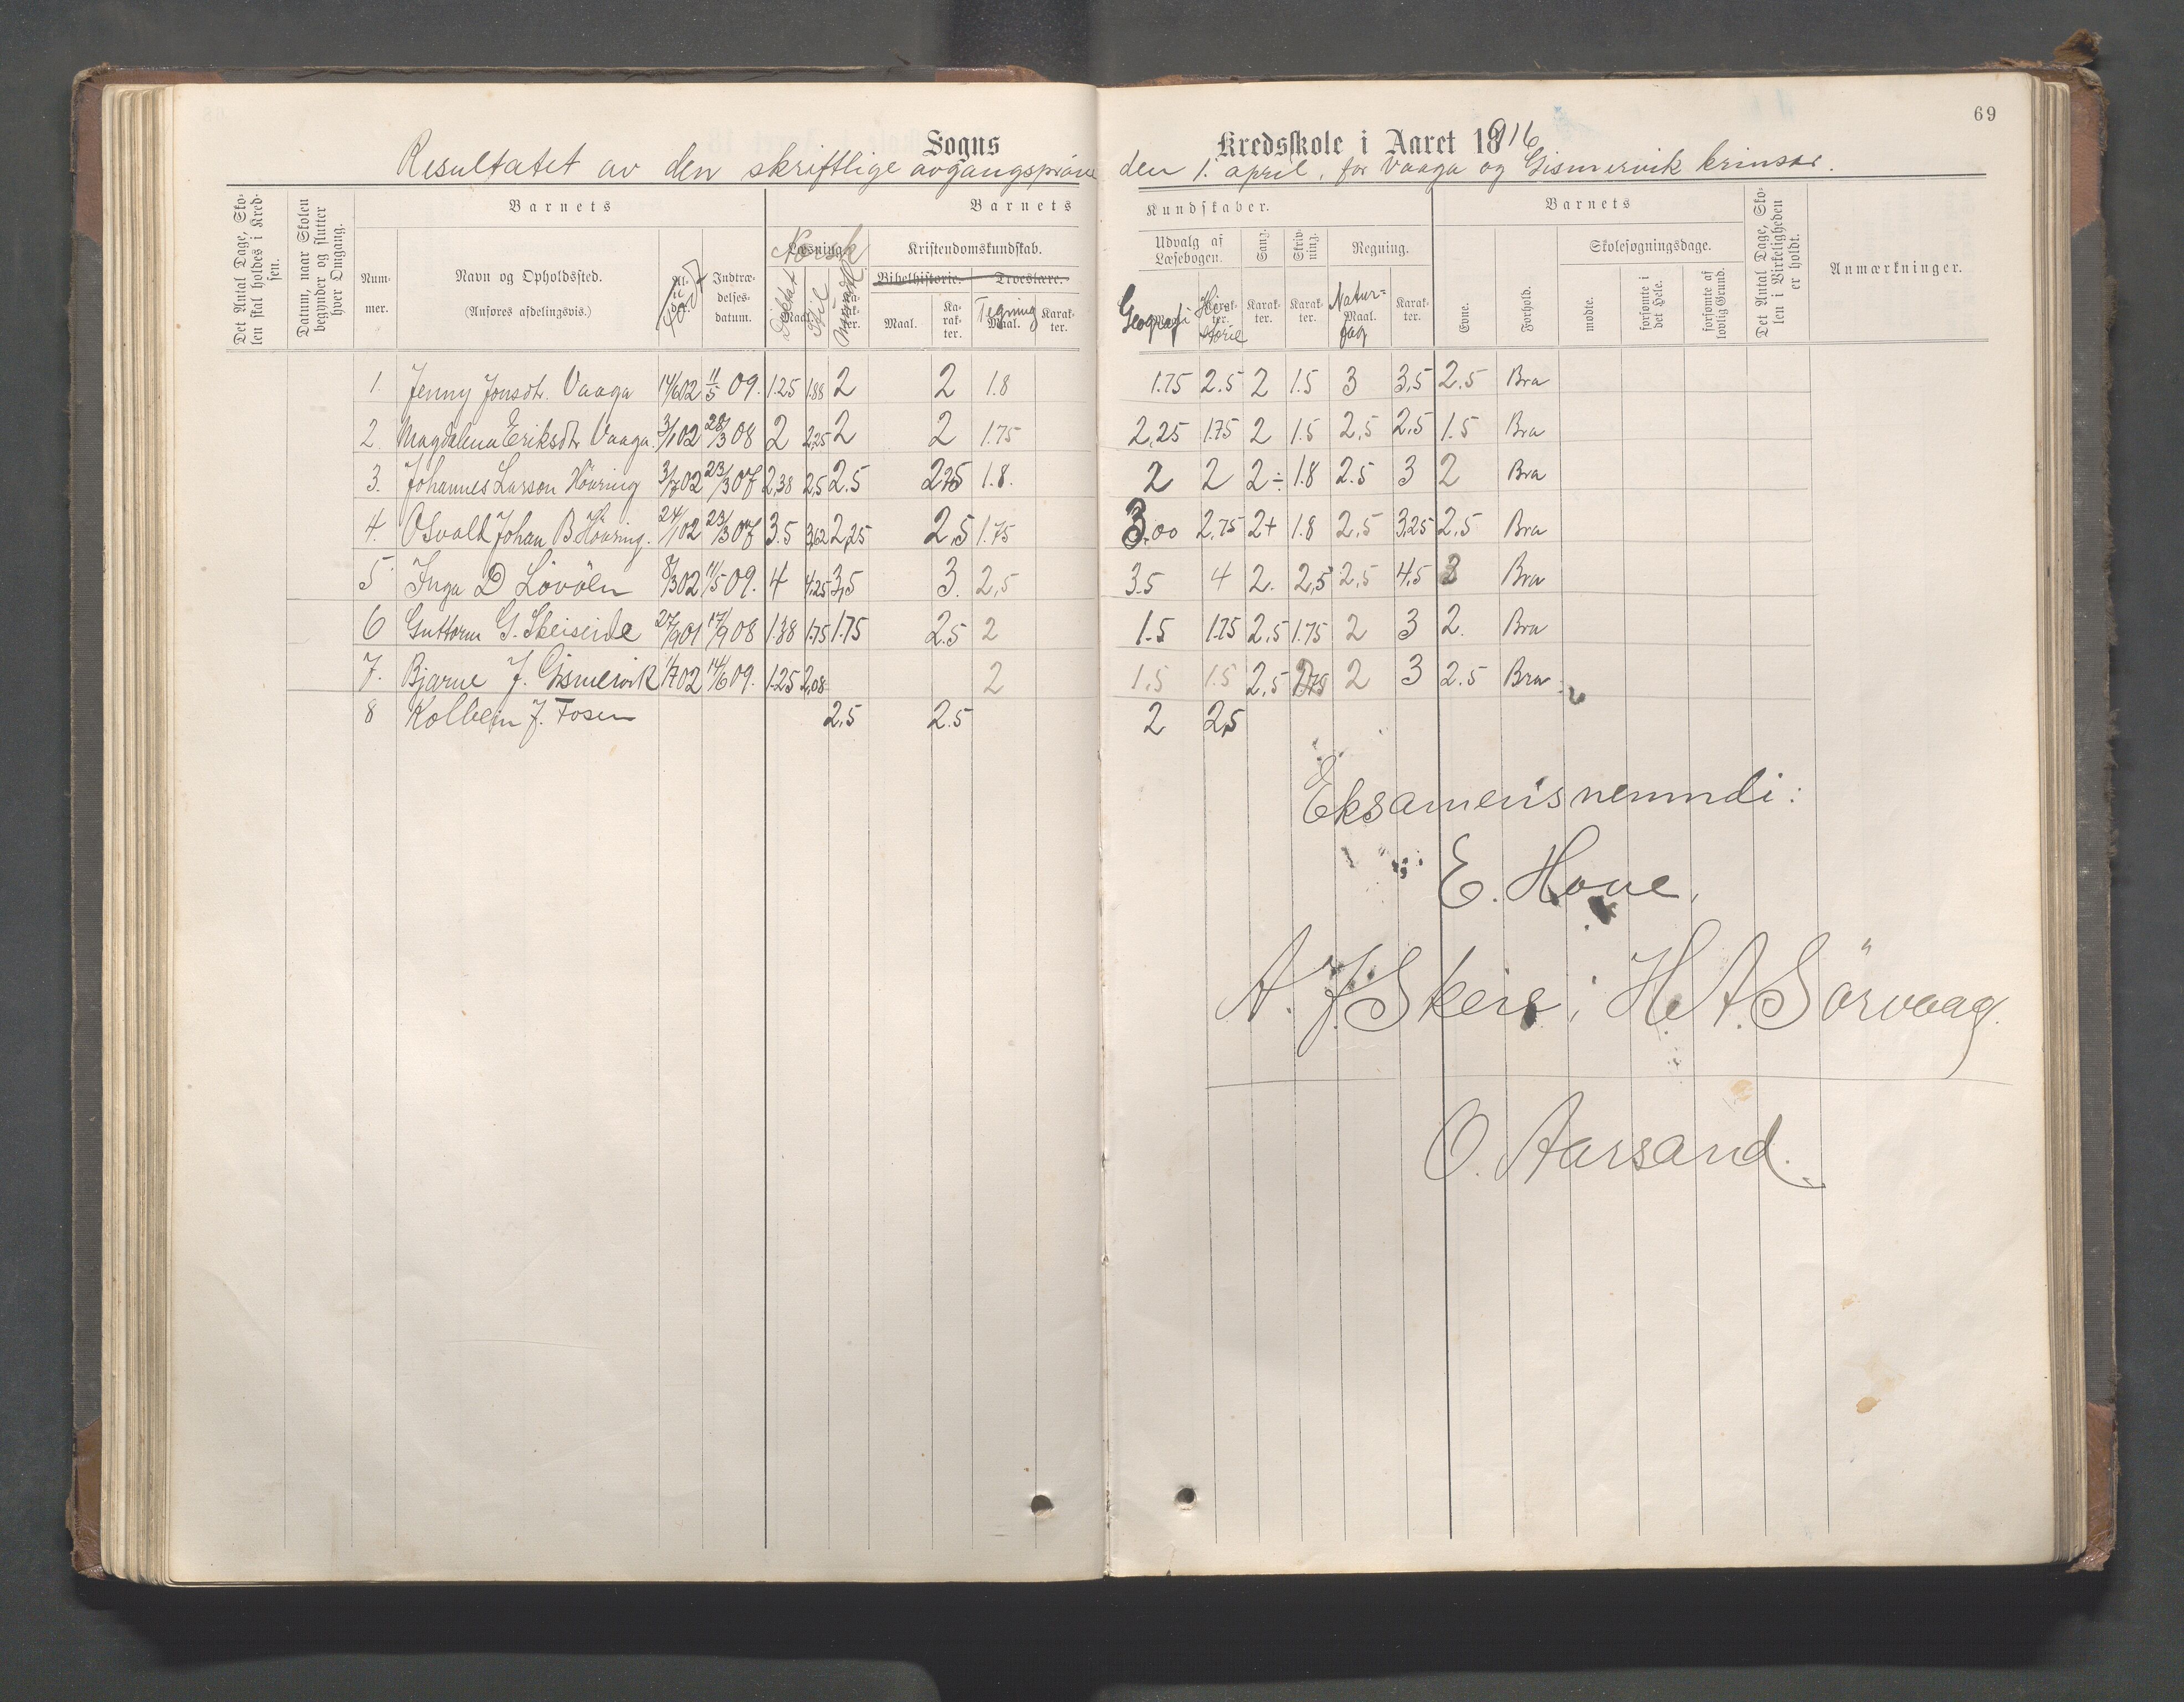 69
Sogns Kredsskole i Aaret 1916
Resultatet av den skriftlige avgangspröve den 1. april, for Vaaga og Gismervik krinsar.
Det Antal Dage, Skolen skal holdes i Kredsen.
Datum, naar Skolen begynder og slutter hver Omgang.
Barnets
Barnets Kundskaber.
Barnets
Det Antal Dage, Skolen i Virkeligheden er holdt.
Anmærkninger.
Nummer.
Navn og Opholdssted.
(Anføres afdelingsvis.)
Indtrædelsesdatum.
Læsning. Norsk
Diktat Stil
Kristendomskundskab.
Bibelhistorie. Troeslære.
Maal. Karakter. Tegning Maal. Karakter.
Udvalg af Læsebogen.
Geografi Historie
Sang. Karakter.
Skrivning. Karakter.
Regning.
Naturfag Maal. Karakter.
Evne.
Forhold.
Skolesøgningsdage.
mødte.
forsømte i det Hele.
forsømte af lovlig Grund.
1. Jenny Jonsdtr. Vaaga 14/6 02 11/5 09. 1.25 1.88 2 2 1.8 1.75 2.5 2 1.5 3 3,5 2.5 Bra
2. Magdalena Eriksdtr Vaaga. 3/1 02 28/3 08 2 2,25 2 2 1.75 2,25 1.75 2 1.5 2,5 2,5 1.5 Bra
3. Johannes Larson Hövring 3/7 02 23/3 07 2,38 2,5 2.5 2,75 1.8. 2 2 2÷ 1.8 2.5 3 2 Bra
4. Osvald Johan B. Hövring. 24/1 02 23/3 07 3.5 3,62 2,25 2,5 1.75 3.00 2,75 2+ 1.8 2,5 3,25 2,5 Bra
5 Inga D Lövöln 8/3 02 11/5 09. 4 4,25 3,5 3. 2,5 3.5 4 2. 2,5 2,5 4,5 3 Bra
6 Guttorm G. Skeiseide 27/9 01 17/9 08 1.38 1.75 1.75 2.5 2 1.5 1.75 2,5 1.75 2 3 2. Bra
7. Bjarne J. Gismervik 1/7 02 14/6 09. 1.25 2,08 2 1,5 1.5 2,5 2,75 2 3 2.5 Bra
8 Kolbein J. Fosen 2,5 2.5 2 2,5
Eksamensnemndi:
E. Hove.
A. J. Skeie; H. A. Sörvaag.
O. Aarsand.